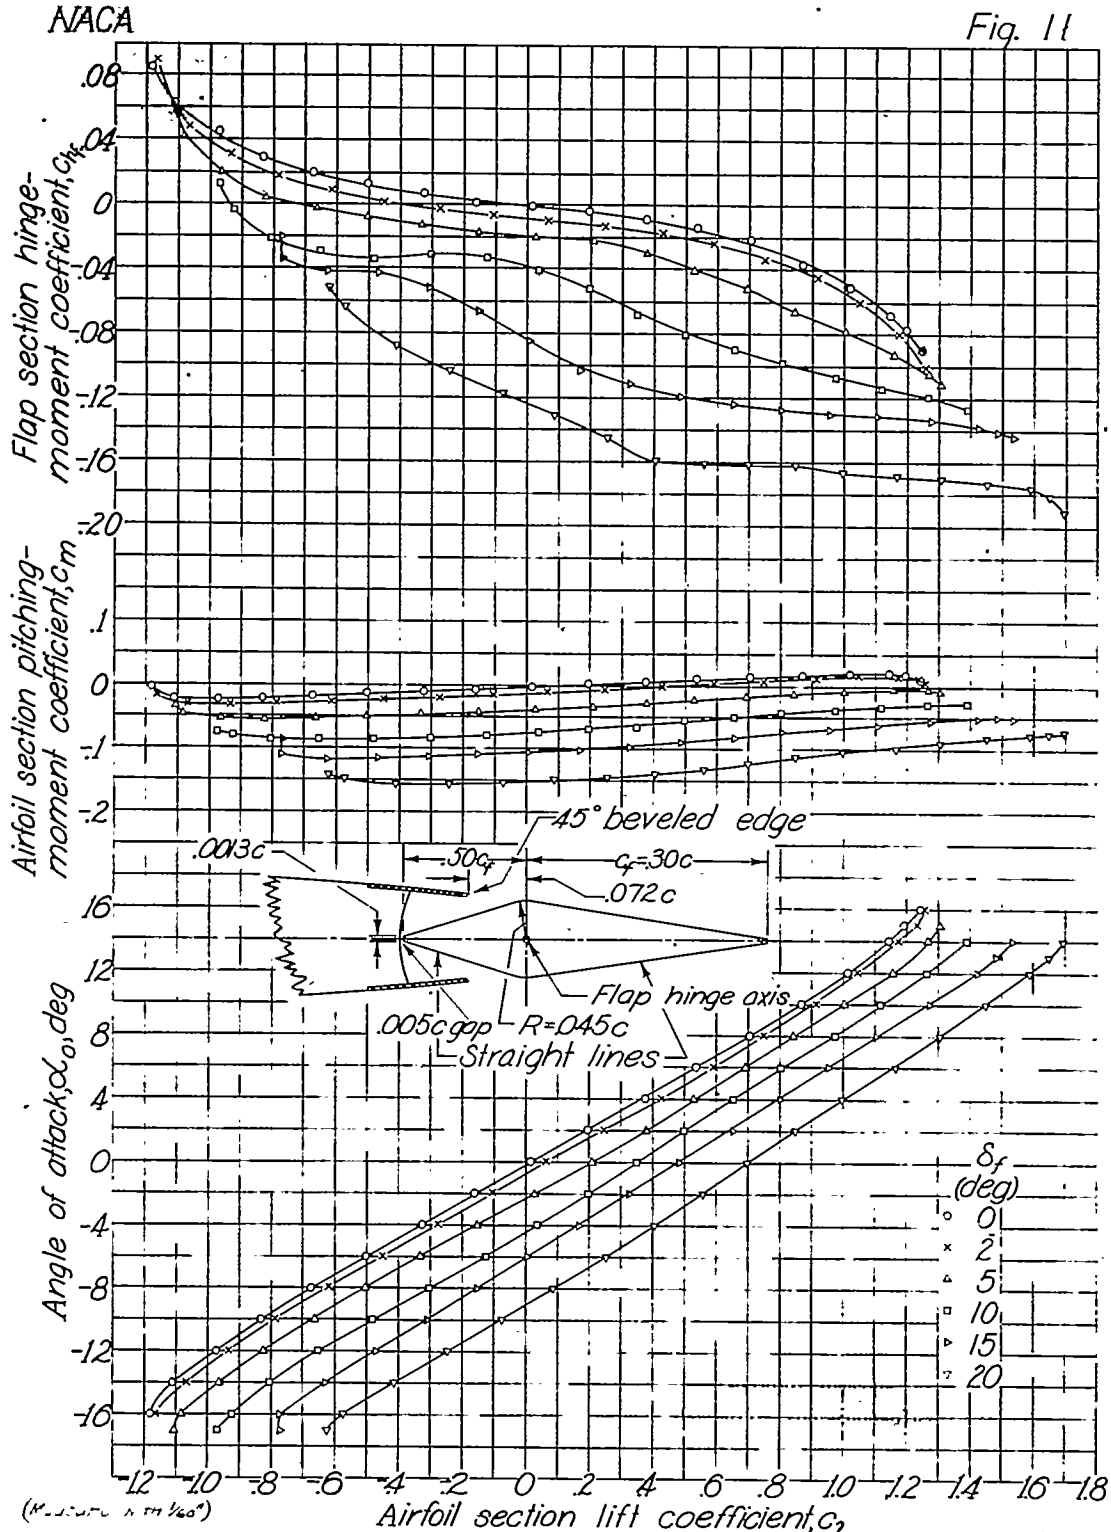 NACA
Fig. 11
Flap section hinge-
moment coefficient, c_hf
.08
.04
0
-.04
-.08
-.12
-.16
-.20
Airfoil section pitching-
moment coefficient, c_m
.1
0
-.1
-.2
45° beveled edge
.0013c
.50c_f
c_f=.30c
.072c
Flap hinge axis
.005c gap
R=.045c
Straight lines
Angle of attack, α_0, deg
16
12
8
4
0
-4
-8
-12
-16
δ_f
(deg)
○ 0
× 2
△ 5
□ 10
▷ 15
▽ 20
-1.2 -1.0 -.8 -.6 -.4 -.2 0 .2 .4 .6 .8 1.0 1.2 1.4 1.6 1.8
Airfoil section lift coefficient, c_l
1/60"